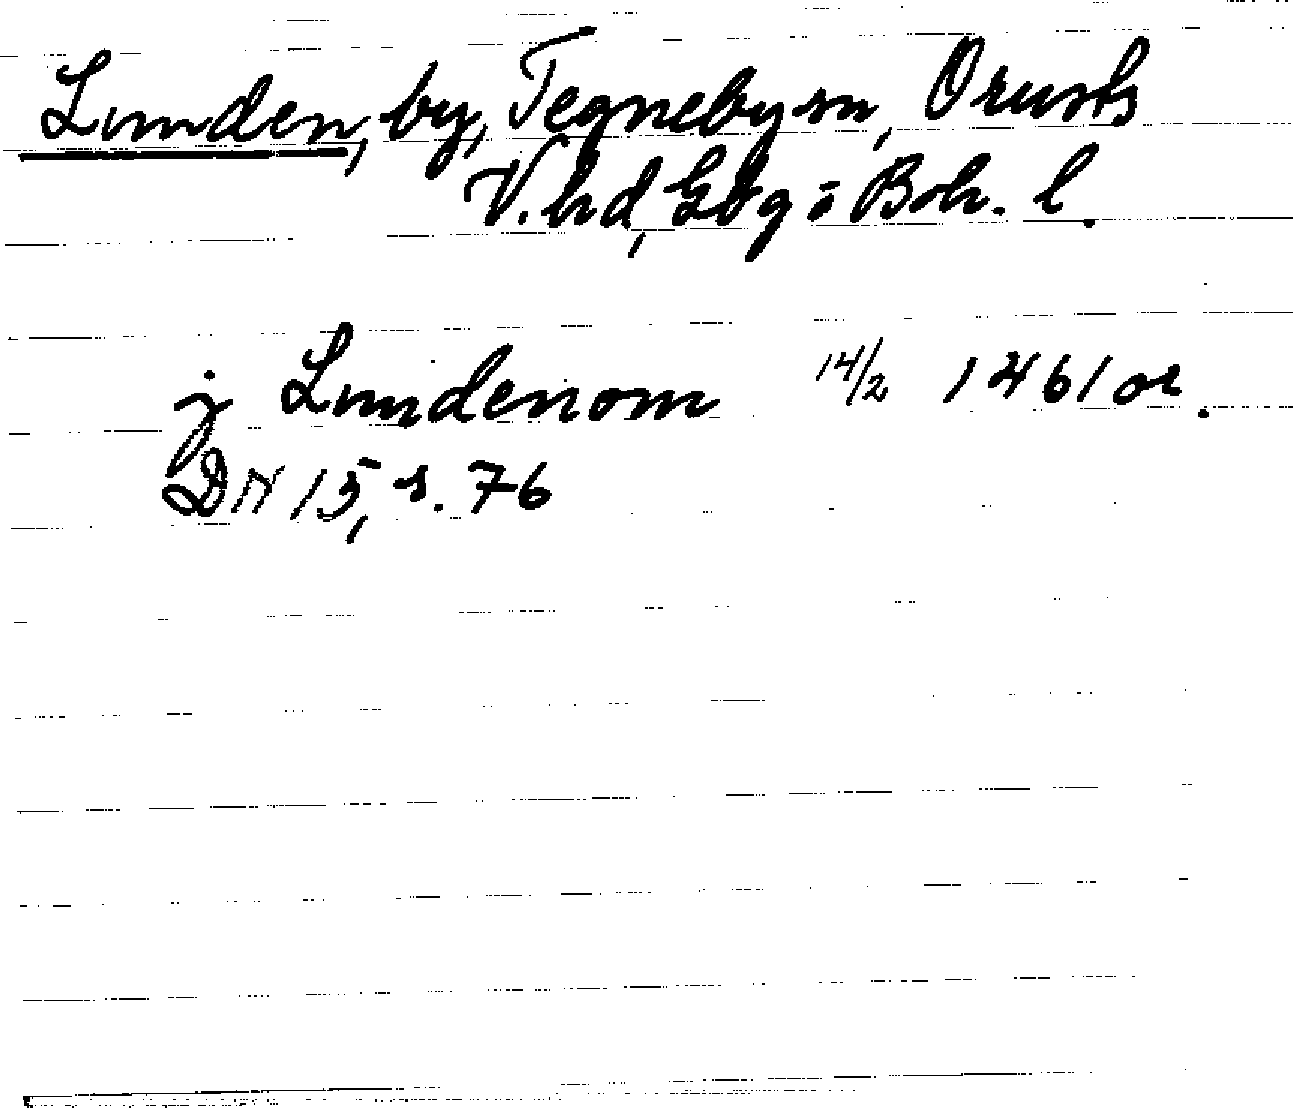 Lunden, by, Tegneby sn, Orusts
V. hd, Gbg o Boh. l.
j Lundenom 14/2 1461 or.
DN 15, s. 76